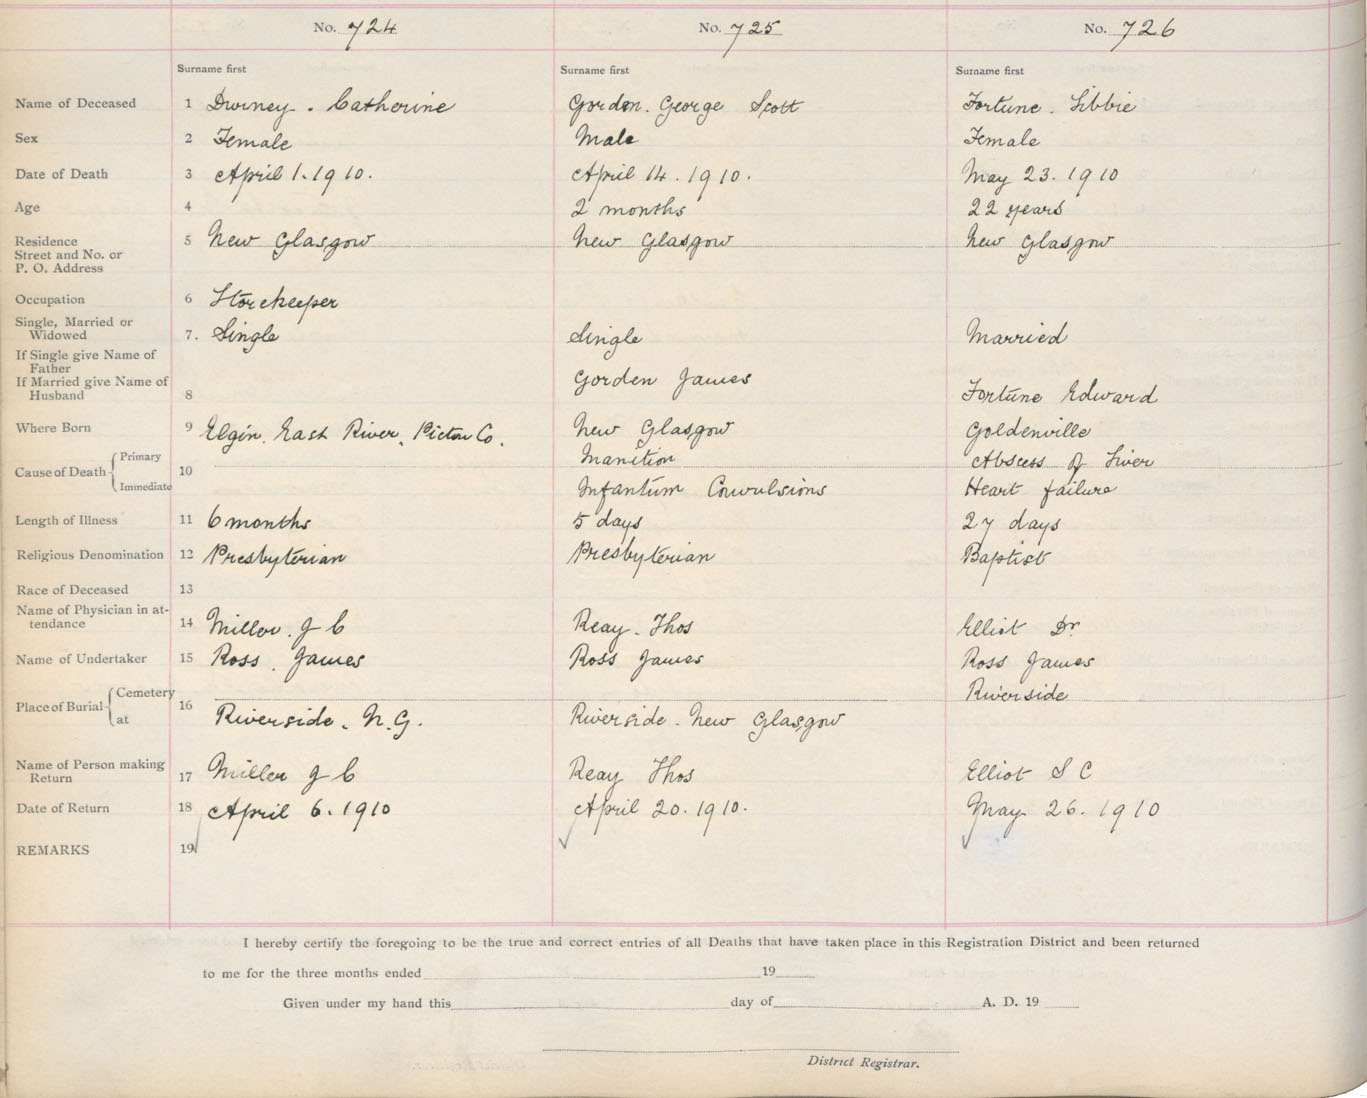 No. 724 No. 725 No. 726
Surname first Surname first Surname first
Name of Deceased 1 Downey. Catherine Gorden. George Scott Fortune. Libbie
Sex 2 Female Male Female
Date of Death 3 April 1. 1910. April 14. 1910. May 23. 1910
Age 4 2 months 22 years
Residence 5 New Glasgow New Glasgow New Glasgow
Street and No. or
P. O. Address
Occupation 6 Storekeeper
Single, Married or
Widowed 7. Single Single Married
If Single give Name of
Father
If Married give Name of Gorden James
Husband 8 Fortune Edward
Where Born 9 Elgin. East River. Pictou Co. New Glasgow Goldenville
Cause of Death Primary 10 Inanition Abscess of Liver
Immediate Infantum Convulsions Heart failure
Length of Illness 11 6 months 5 days 27 days
Religious Denomination 12 Presbyterian Presbyterian Baptist
Race of Deceased 13
Name of Physician in at-
tendance 14 Miller. J C Reay. Thos Elliot Dr
Name of Undertaker 15 Ross. James Ross James Ross James
Place of Burial Cemetery 16 Riverside
at Riverside. N.G. Riverside. New Glasgow
Name of Person making
Return 17 Miller J C Reay Thos Elliot S C
Date of Return 18 April 6. 1910 April 20. 1910. May 26. 1910
REMARKS 19
I hereby certify the foregoing to be the true and correct entries of all Deaths that have taken place in this Registration District and been returned
to me for the three months ended 19
Given under my hand this day of A. D. 19
District Registrar.